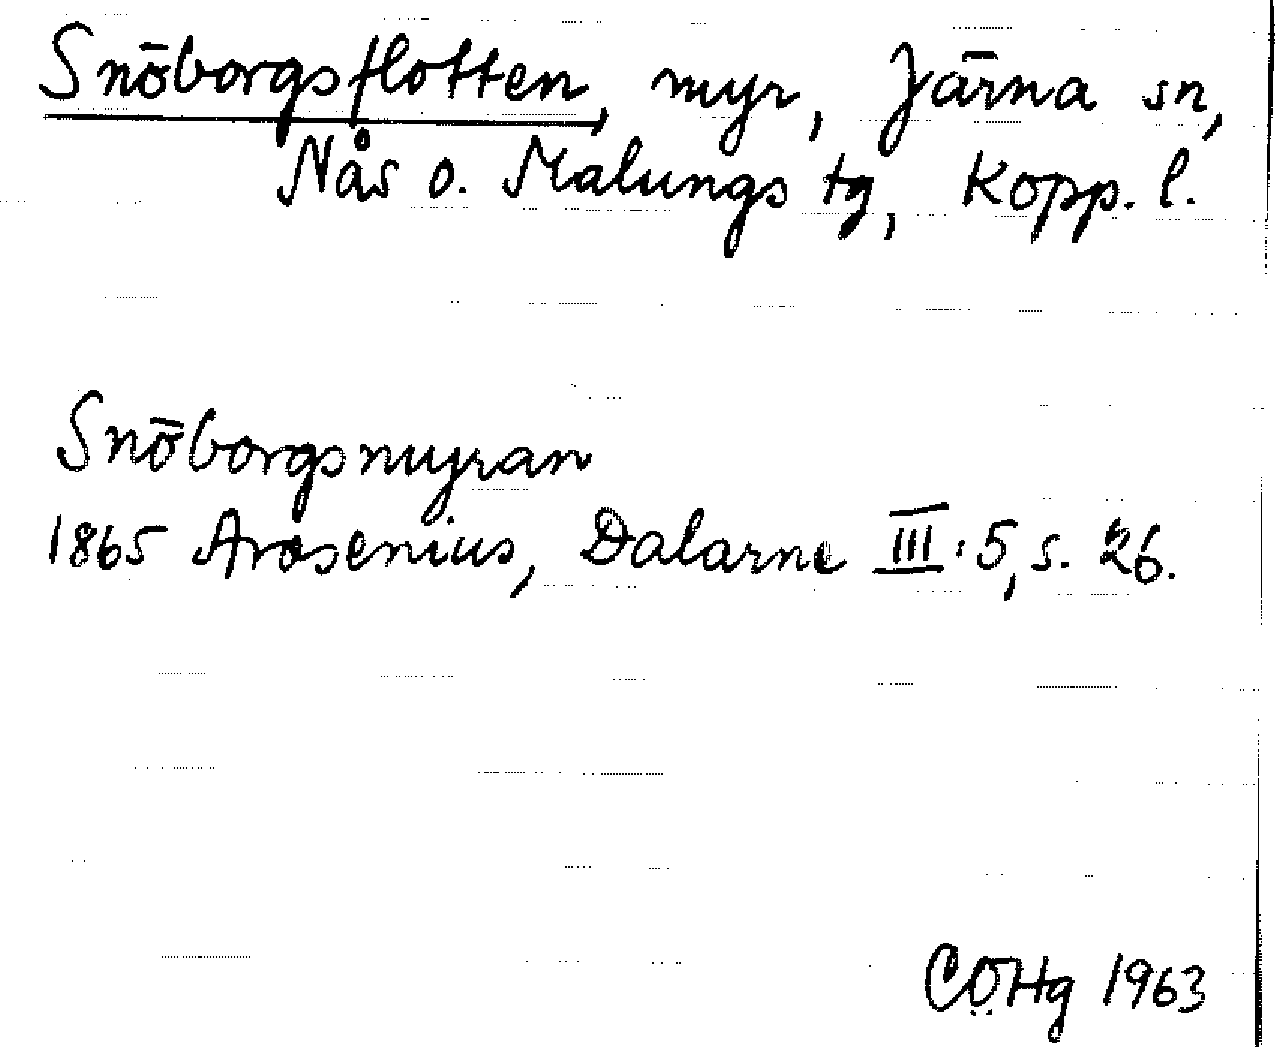 Snöborgsflotten, myr, Järna sn,
Nås o. Malungs tg, Kopp. l.
Snöborgsmyran
1865 Arosenius, Dalarne III:5, s. 26.
CÖHg 1963